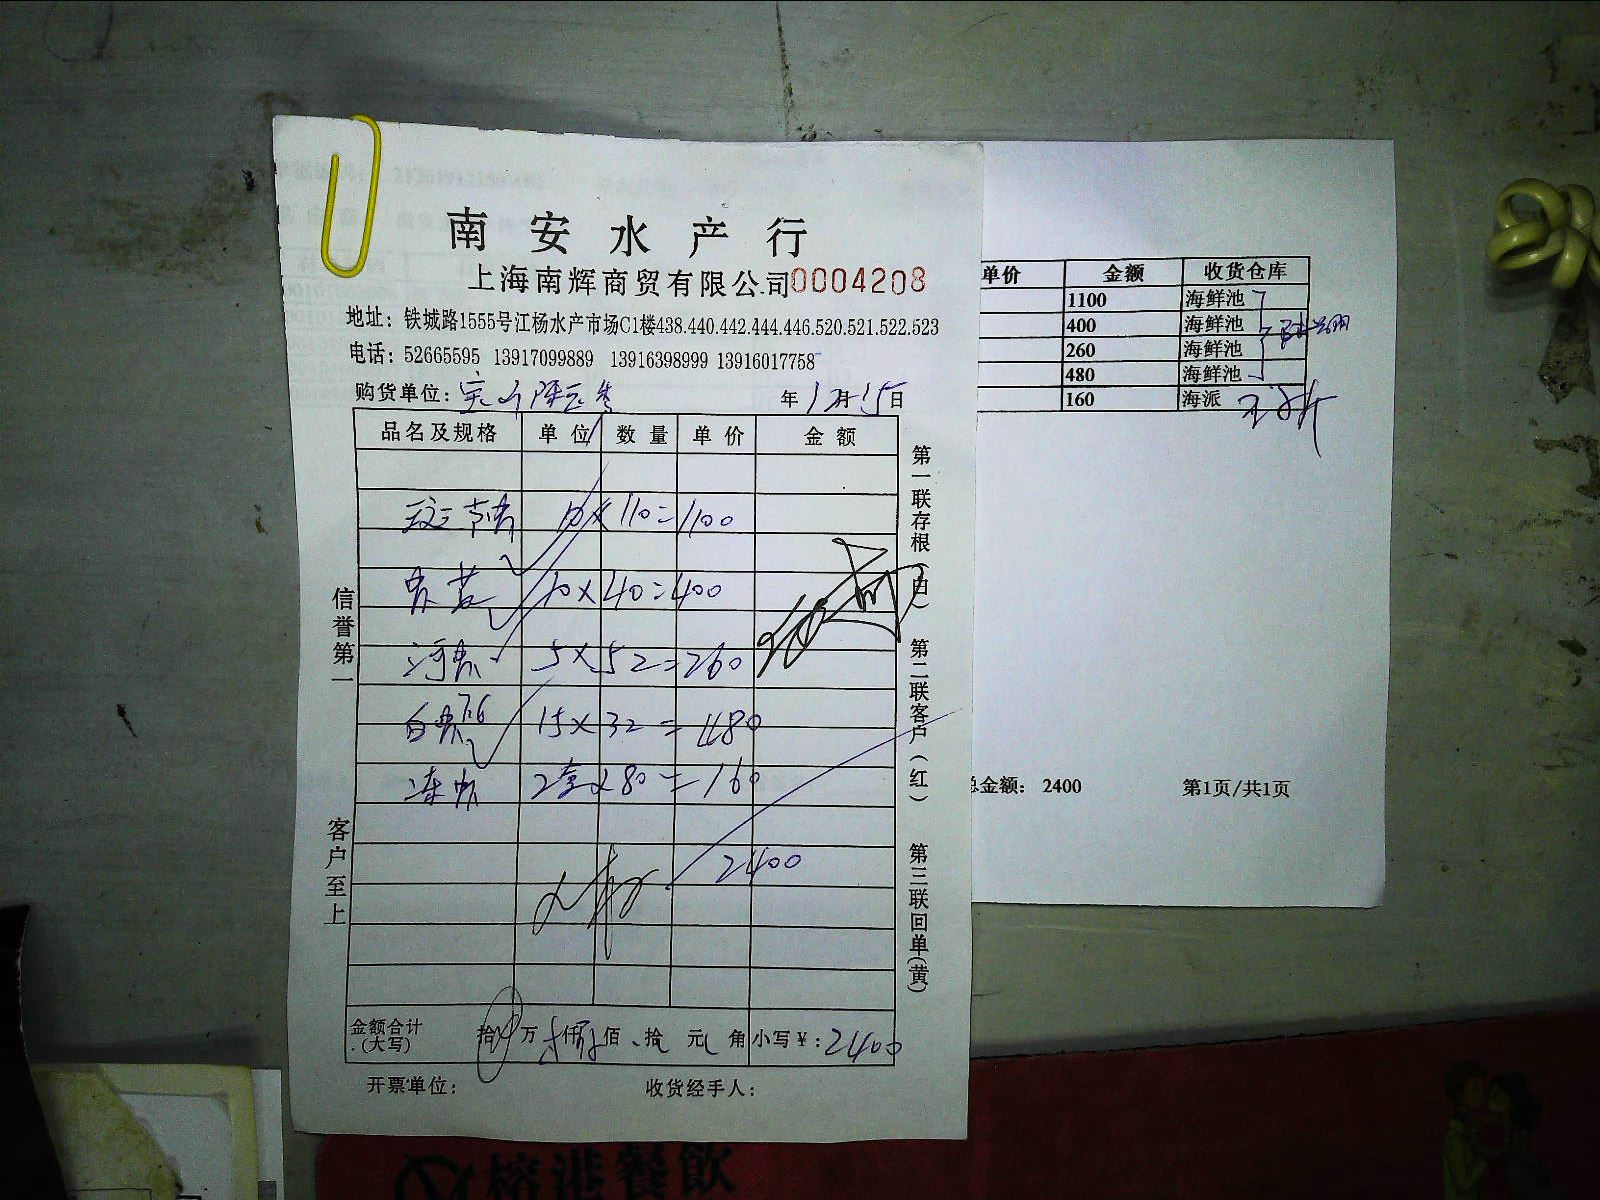 南安水产行
上海南辉商贸有限公司0004208
地址：铁城路1555号江杨水产市场C1楼438.440.442.444.446.520.521.522.523
电话：52665595 13917099889 13916398999 13916017758
购货单位：宝山
年1月15日
品名及规格 单位 数量 单价 金额
10×110=1100
10×40=400
河虾 5×52=260
白虾 15×32=480
冻虾 2盒×80=160
2400
金额合计(大写) 拾 万 仟 佰 拾 元 角 小写￥：2400
开票单位： 收货经手人：
信誉第一
客户至上
第一联存根（白）
第二联客户（红）
第三联回单(黄)
单价 金额 收货仓库
1100 海鲜池
400 海鲜池
260 海鲜池
480 海鲜池
160 海派
总金额： 2400 第1页/共1页
榕港餐飲